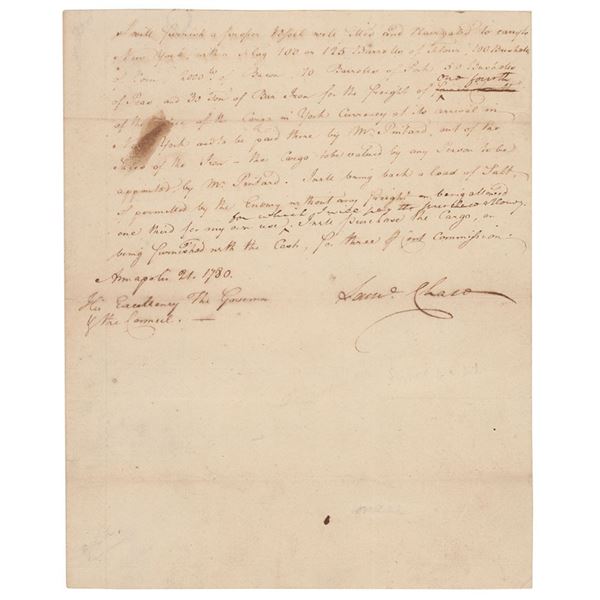 I will furnish a proper Vessel well fitted and Navigated to carry to
New York, with a Flag 100 or 125 Barrells of Flour, 100 Bushells
of Corn 2000 lb of Bacon 70 Barrells of Pork 50 Bushells
of Peas and 30 Tons of Bar Iron for the freight of one fourth
of the of the Cargo in York Currency at its arrival in
New York and to be paid there by Mr. Pintard, out of the
Sales of the Iron - the Cargo to be valued by any Person to be
appointed by Mr. Pintard. I will bring back a load of Salt,
if permitted by the Enemy without any freight on being allowed
one third for my own use, for which I will pay the purchase Money.
I will purchase the Cargo, on
being furnished with the Cash, for three Cent Commission.
Annapolis 21. 1780.
His Excellency The Governor
& the Council.
Saml. Chase